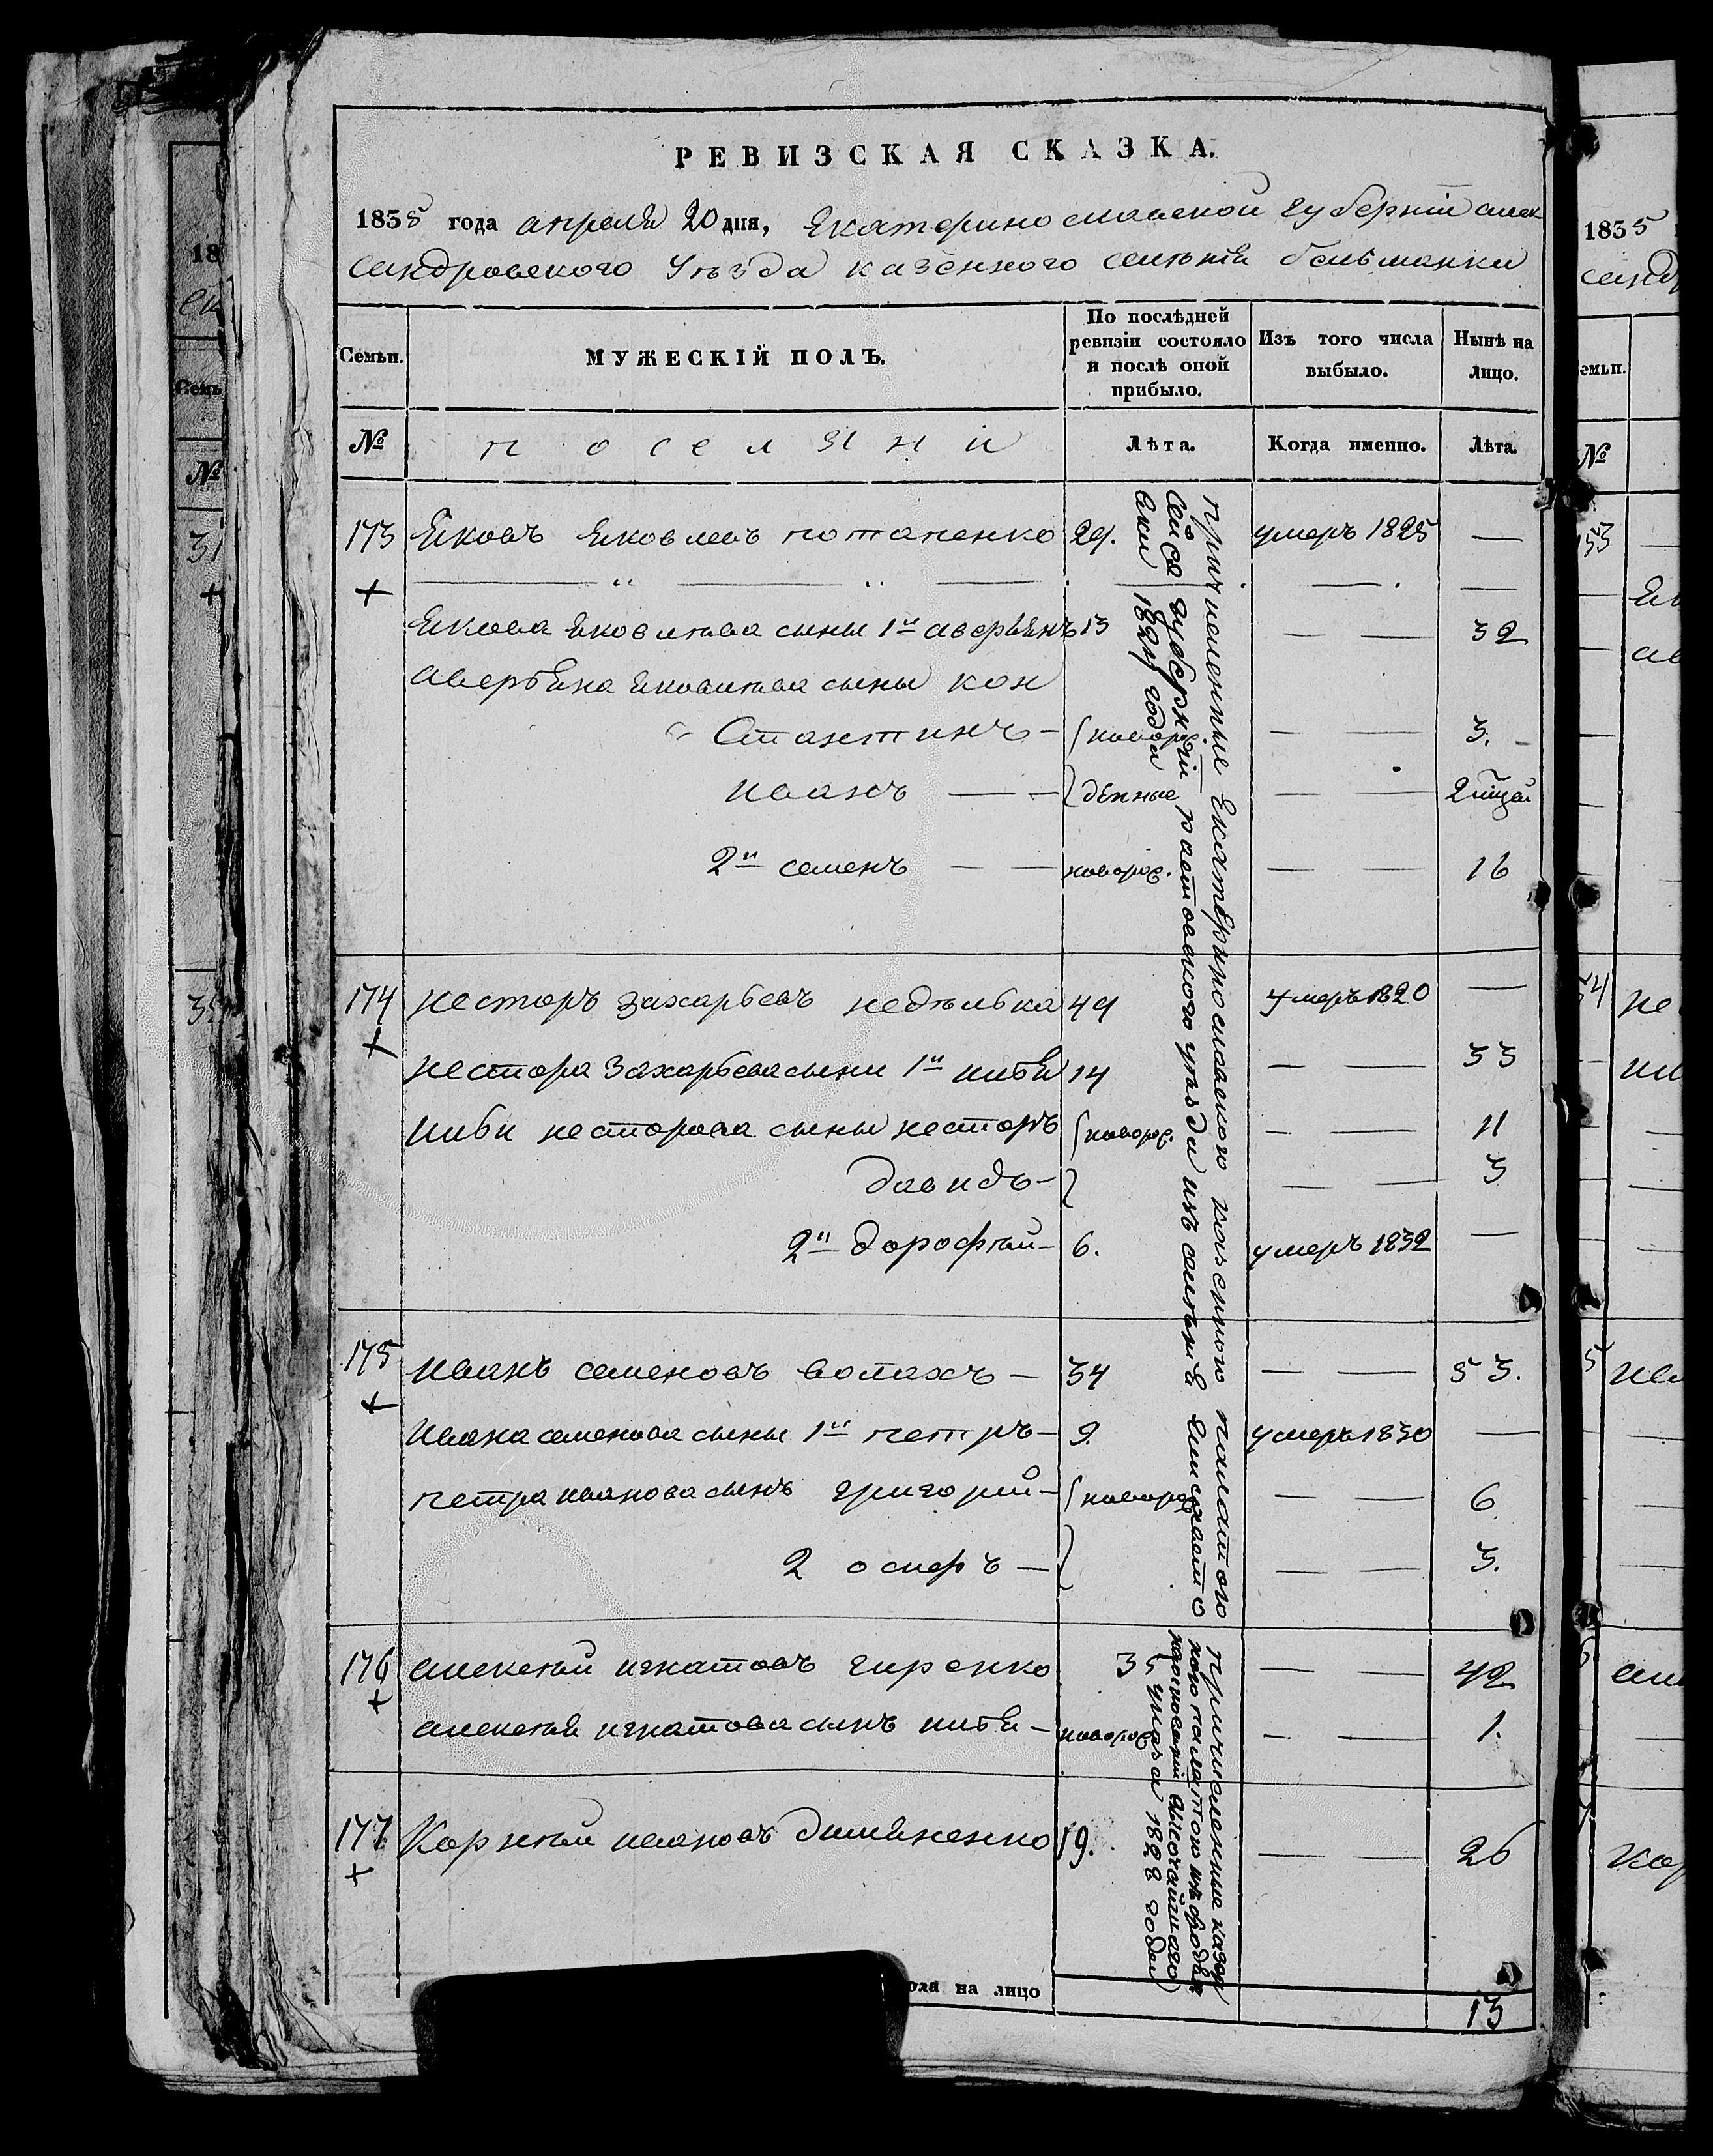 РЕВИЗСКАЯ СКАЗКА.
1835 года апреля 20 дня, Екатеринославской губернии алек
сандровского уѣзда казенного селенія белъманки
Семьи.
МУЖЕСКІЙ ПОЛЪ.
По послѣдней
ревизіи состояло
и послѣ оной
прибыло.
Изъ того числа
выбыло.
Нынѣ на
лицо.
№
поселяни
Лѣта.
Когда именно.
Лѣта.
173 Яковъ Яковлевъ потапенко 29. умеръ 1825 —
Якова Яковлева сыны 1й аверьянъ 13 — — 32
аверьяна Яковлева сыны кон
стантинъ — новорож — — 3.
иванъ — — денные — — 2 мцей
2й семенъ — — новорож. — — 16
174 несторъ захарьевъ недѣлька 49 умеръ 1820 —
нестора захарьева сыни 1й илья 14 — — 33
ильи несторова сыны несторъ новорож. — — 11
давидъ — — — 3
2й дорофѣй — 6. умеръ 1832 —
175 иванъ семеновъ волахъ — 34 — — 53.
ивана семенова сыны 1й петръ — 9. умеръ 1830 —
петра иванова сынъ григорий — новорож — — 6
2 осиръ — — — 3.
176 алексѣй игнатовъ гиренко 35 — — 42
алексѣя игнатова сынъ илья — новорож — — 1.
177. Корнѣй ивановъ димяненко 19. — — 26
причисленные Екатеринославского казенною палатою
губерніи растовского уѣзда изъ селенія
1824 года
причисленние казен
ною палатою изъ бродяг
на основаніи высочайшаго
указа 1828 года
ола на лицо
13
1835
санд
емьи.
№
18
Семь
№